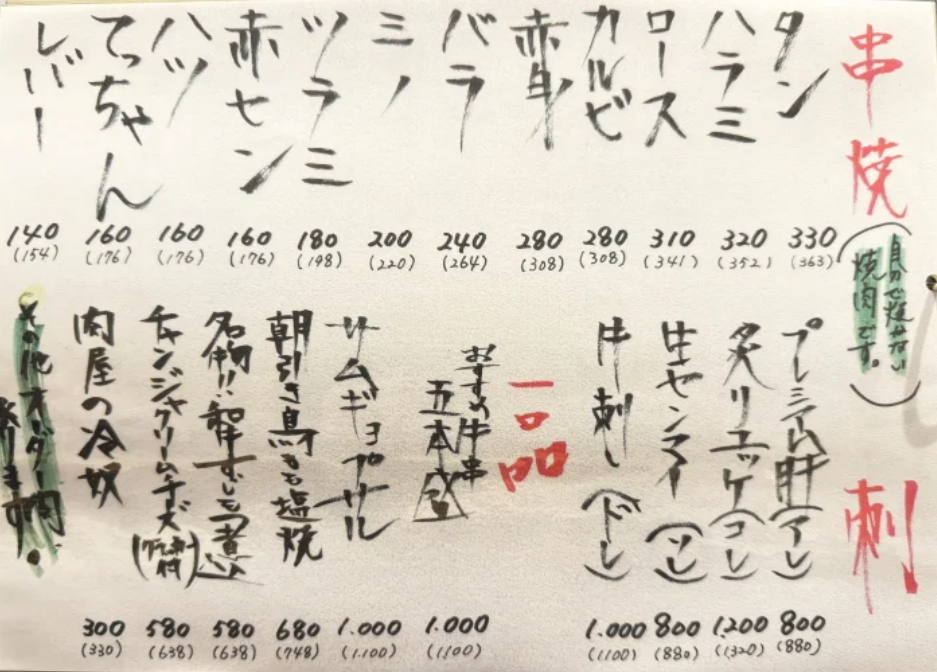 串焼
(自分で焼かない
焼肉です。)
タン 330 (363)
ハラミ 320 (352)
ロース 310 (341)
カルビ 280 (308)
赤身 280 (308)
バラ 240 (264)
ミノ 200 (220)
ツラミ 180 (198)
赤セン 160 (176)
ハツ 160 (176)
てっちゃん 160 (176)
レバー 140 (154)
刺
プレミアム肝(アレ) 800 (880)
炙りユッケ(コレ) 1.200 (1320)
生センマイ(ソレ) 800 (880)
牛刺し(ドレ) 1.000 (1100)
一品
おすすめ牛串
五本盛 1.000 (1100)
サムギョプサル 1.000 (1.100)
朝引き鳥もも塩焼 680 (748)
名物!!牛すじ煮 580 (638)
チャンジャクリームチーズ
(クラッカー付) 580 (638)
肉屋の冷奴 300 (330)
その他オーダー聞
承ります